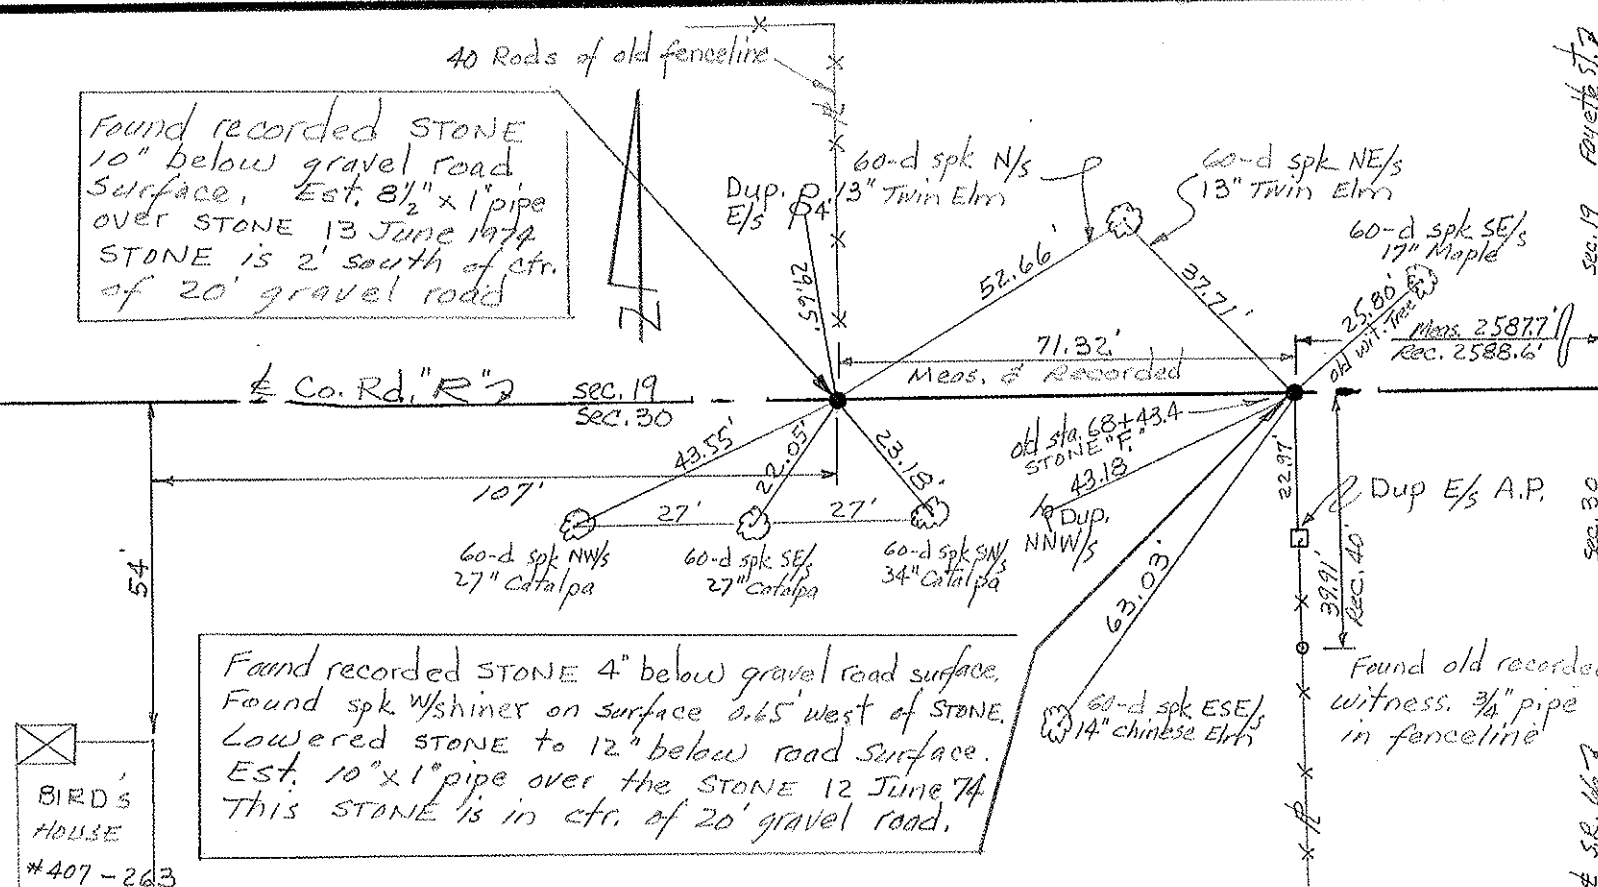 40 Rods of old fenceline
Found recorded STONE
10" below gravel road
Surface. Est. 8½" x 1" pipe
over STONE 13 June 1974
STONE is 2' south of ctr.
of 20' gravel road
Dup.
E/s
60-d spk N/s
13" Twin Elm
60-d spk NE/s
13" Twin Elm
60-d spk SE/s
17" Maple
29.65'
52.66'
37.71'
25.80'
old wit. Tree
71.32'
Meas. & Recorded
Meas. 2587.7'
Rec. 2588.6'
sec. 19
Co. Rd. "R"
sec. 19
sec. 30
43.55'
22.05'
23.18'
107'
27'
27'
54'
60-d spk NW/s
27" Catalpa
60-d spk SE/s
27" Catalpa
60-d spk SW/s
34" Catalpa
old sta. 68+43.4
STONE "F."
43.18
Dup.
NNW/s
63.03'
22.97'
Dup E/s A.P.
39.91'
Rec. 40'
sec. 30
60-d spk ESE/s
14" chinese Elm
Found old recorded
witness. 3/4" pipe
in fenceline
Found recorded STONE 4" below gravel road surface.
Found spk w/shiner on surface 0.65' west of STONE.
Lowered STONE to 12" below road surface.
Est. 10" x 1" pipe over the STONE 12 June 74
This STONE is in ctr. of 20' gravel road.
BIRD'S
HOUSE
#407-263